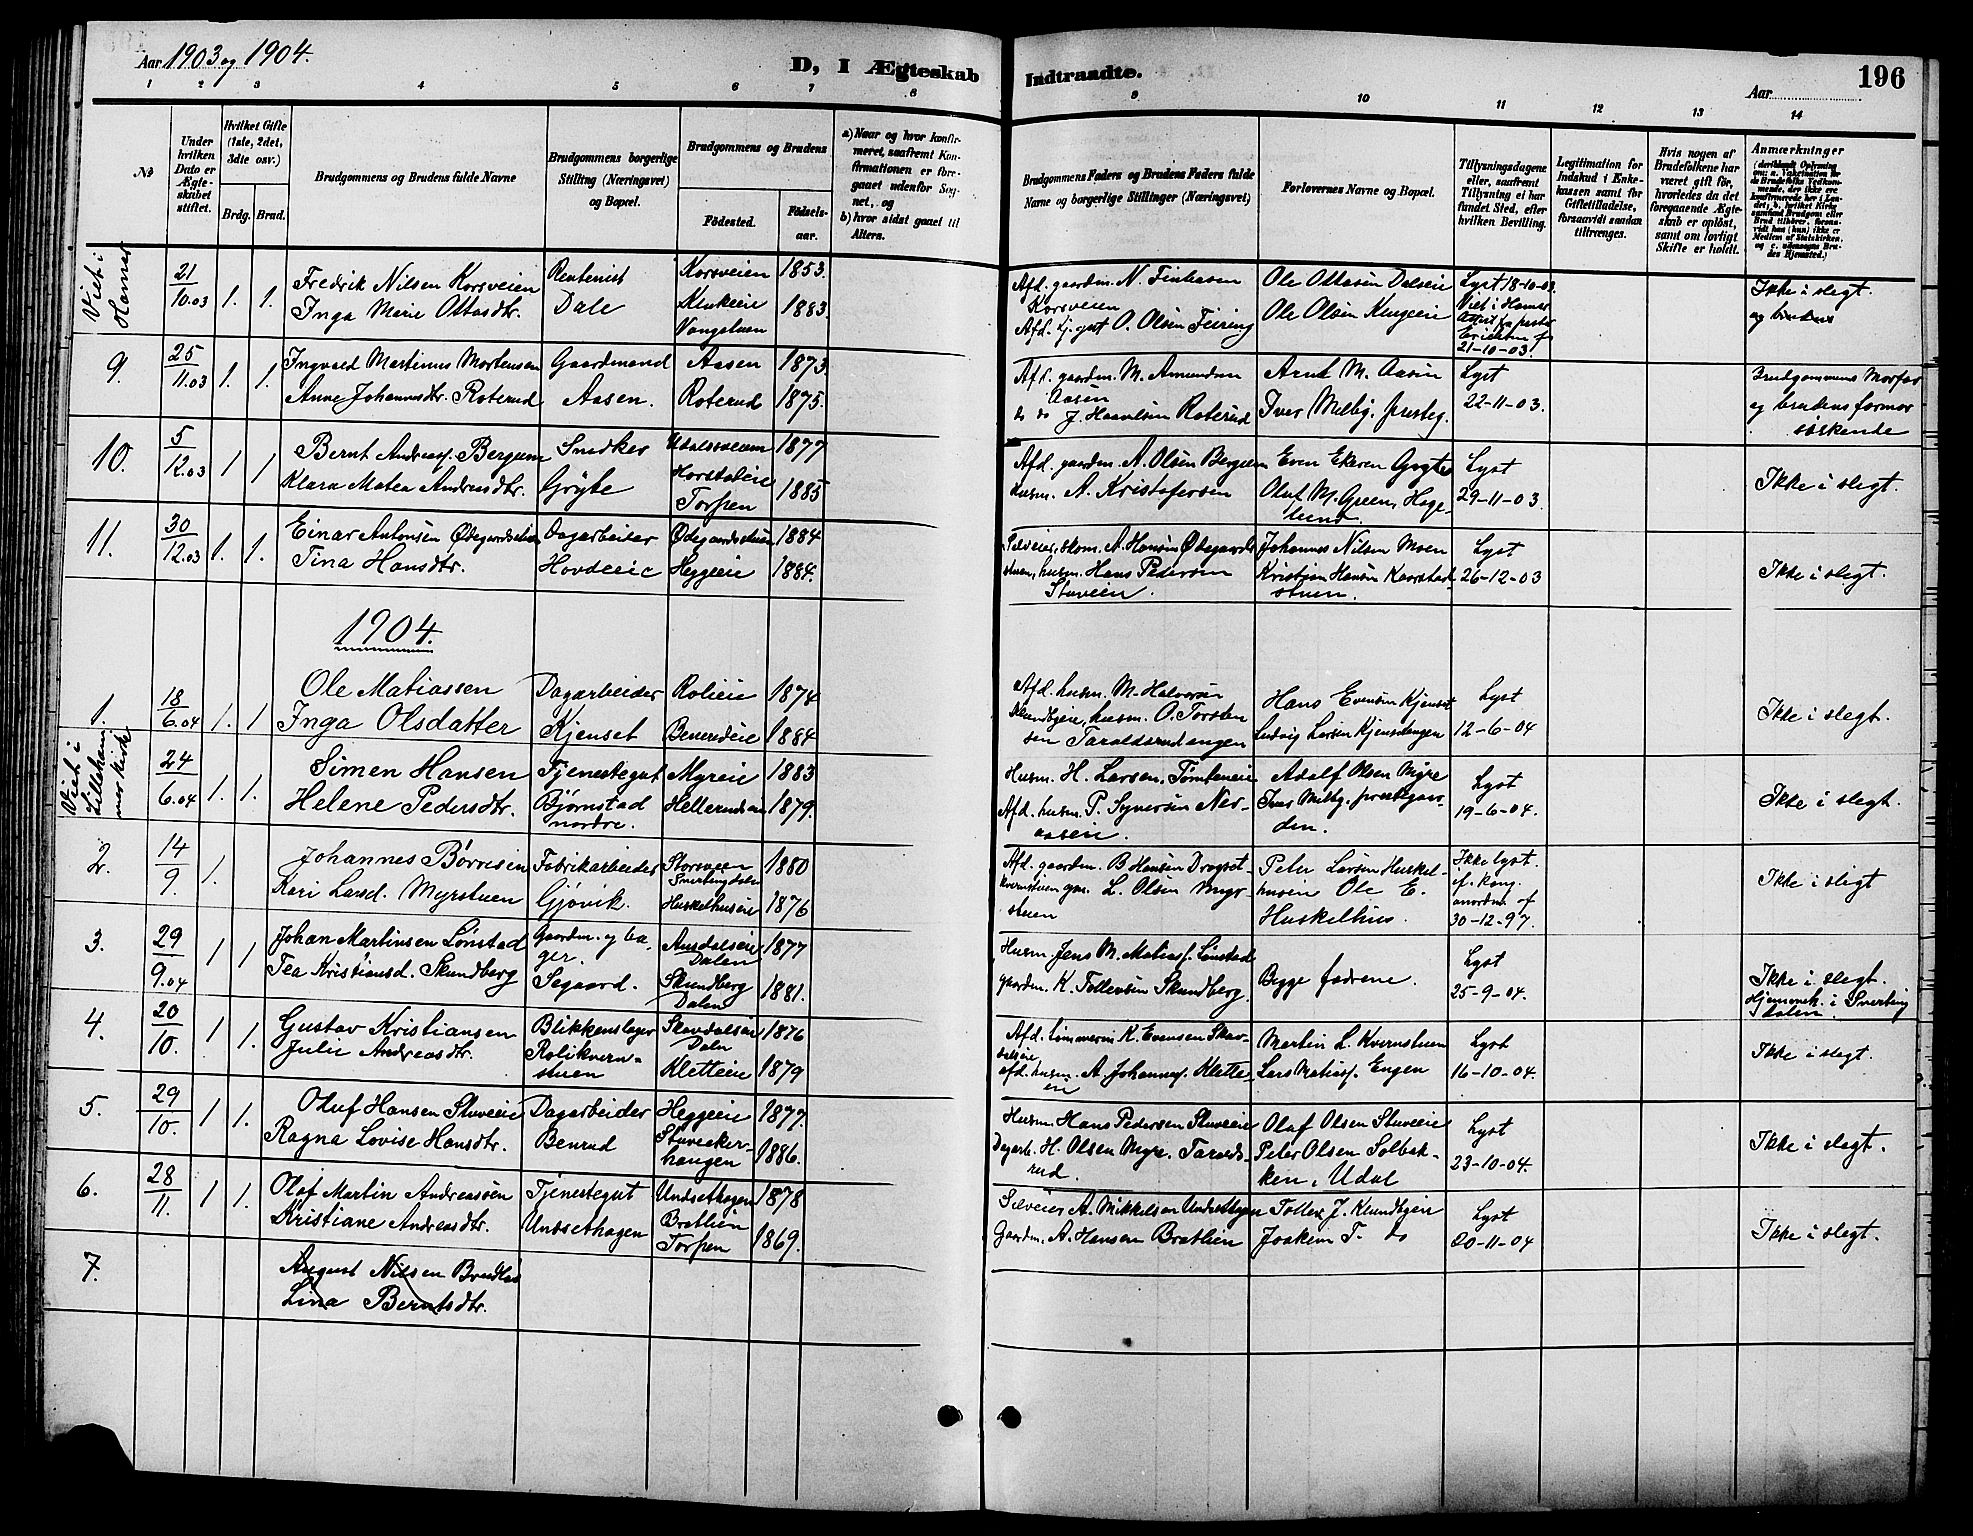 Aar 1903 og 1904.
D, I Ægteskab Indtraadte.
Aar
196
1 2 3 4 5 6 7 8 9 10 11 12 13 14
No
Under hvilken Dato er Ægteskabet stiftet.
Hvilket Gifte (1ste, 2det, 3dte osv.)
Brdg. Brud.
Brudgommens og Brudens fulde Navne
Brudgommens borgerlige Stilling (Næringsvei) og Bopæl.
Brudgommens og Brudens
Fødested. Fødselsaar.
a) Naar og hvor konfirmeret, saafremt Konfirmationen er foregaaet udenfor Sognet, og
b) hvor sidst gaaet til Alters.
Brudgommens Faders og Brudens Faders fulde Navne og borgerlige Stillinger (Næringsvei)
Forlovernes Navne og Bopæl.
Tillysningsdagene eller, saafremt Tillysning ei har fundet Sted, efter hvilken Bevilling.
Legitimation for Indskud i Enkekassen samt for Giftetilladelse, forsaavidt saadan tiltrænges.
Hvis nogen af Brudefolkene har været gift før, hvorledes da det foregaaende Ægteskab er opløst, samt om lovligt Skifte er holdt.
Anmærkninger
Viet i Hamar
21/10.03 1. 1.
Fredrik Nilsen Korsveien
Inga Marie Ottosdtr.
Rentenist
Dale
Korsveien 1853.
Klukeie Vangstuen 1883.
Afd. gaardm. N. Korsveien
O. Olsen Feiring
Ole Ottosen Dalseie
Ole Olsen Klugeeie
Lyst 18-10-03.
Viet i Hamar
21-10-03.
Ikke i slegt.
9. 25/11.03 1. 1.
Ingvald Martinus Mortensen
Anne Johannesdtr. Roterud
Gaardmand
Aasen.
Aasen 1873.
Roterud 1875.
Afd. gaardm. M. Amundsen Aasen
do do J. Haavelsen Roterud
Arnt M. Aasen
Iver Melby, presteg.
Lyst
22-11-03.
Brudgommens Morfar
og brudens farmor
søskende
10. 5/12.03 1 1
Bernt Andreass. Bergum
Klara Matea Andreasdtr.
Snedker
Gryte
1877
Torpen 1885
Afd. gaardm. A. Olsen Bergum
husm. A. Kristofersen
Even Ekeren Grytes
Oluf M. Green, Hagelund.
Lyst
29-11-03.
Ikke i slegt.
11. 30/12.03 1. 1.
Einar Antonsen Ødegaardsstuen
Tina Hansdtr.
Dagarbeider
Hovdeeie
Ødegaardsstuen 1884
Heggeeie 1884.
Selveier, skom. A. Hansen Ødegaardsstuen, husm. Hans Pedersen
Stuveien.
Johannes Nilsen Moen
Kristian Hansen Kaarstadstuen.
Lyst
26-12-03
Ikke i slegt.
1904.
1. 18/6.04 1. 1
Ole Matiassen
Inga Olsdatter
Dagarbeider
Kjenset
Rolieie 1874
Benerudeie 1884
Afd. husm. M. Halvorsen
Klundbyeie, husm. O. Torstensen Taraldsrudengen
Hans Evensen Kjenset
Ludvig Larsen Kjensetengen
Lyst
12-6-04
Ikke i slegt.
Viet i Lillehammer kirke.
24/6.04 1. 1.
Simen Hansen
Helene Pedersdtr.
Tjenestegut
Bjørnstad nordre.
Myreie 1883
Hellerudsen 1879.
Husm. H. Larsen, Tømteeie
Afd. husm. P. Syversen Neraaseie.
Adolf Olsen Myre
Iver Melby, prestegaarden.
Lyst
19-6-04.
Ikke i slegt.
2. 14/9. 1.
Johannes Børresen
Kari Larsd. Myrstuen
Fabrikarbeider
Gjøvik.
Storsveen Snertingdalen 1880
Huskelhuseie 1876
Afd. gaardm. B Hansen Drogsetkvernstuen gm. L. Olsen Myrstuen
Peter Larsen Huskelhuseie Ole E. Huskelhus.
Ikke lyst.
cf. kong. anordn. af
30-12-97.
Ikke i slegt
3. 29/9.04 1 1
Johan Martinsen Lønstad
Tea Kristiansd. Skundberg
Gaardm. og bager.
Segaard.
Ausdalseie Dalen 1877
Skundberg Dalen 1881.
Husm. Jens M. Matiass. Lønstad
gaardm. K. Tollevsen Skundberg.
Begge fædrene.
Lyst
25-9-04.
Ikke i slegt.
Hjemmeh. i Snertingdalen.
4. 20/10. 1 1.
Gustav Kristiansen
Julie Andreasdtr.
Blikkenslager
Rolikvernstuen
Skavdalseie Dalen 1876
Kletteie 1879
Afd. tømmerm. K. Evensen Skavdalseie,
afd. husm. A. Johanness. Kletteeie
Martin L. Kvernstuen
Lars Matiass. Engen
Lyst
16-10-04.
Ikke i slegt.
5. 29/10. 1 1.
Oluf Hansen Stuveeie
Ragna Lovise Hansdtr.
Dagarbeider
Benrud
Heggeeie 1877.
Stuveekerhaugen 1886.
Husm. Hans Pedersen Stuveeie
Dagarb. H. Olsen Myre, Taraldsrud.
Olaf Olsen Stuveeie
Peter Olsen Solbakken, Udal
Lyst
23-10-04.
Ikke i slegt.
6. 28/11. 1 1.
Olaf Martin Andreassen
Kristiane Andreasdtr.
Tjenestegut
Undsethagen
Undsethagen 1878
Bratlien Torpen 1869.
Selveier A. Mikkelsen Undsethagen
Gaardm. A. Hansen Bratlien
Tollev J. Klundbyeie
Joakim T. do
Lyst
20-11-04
Ikke i slegt.
7.
August Nilsen
Lina Berntsdtr.